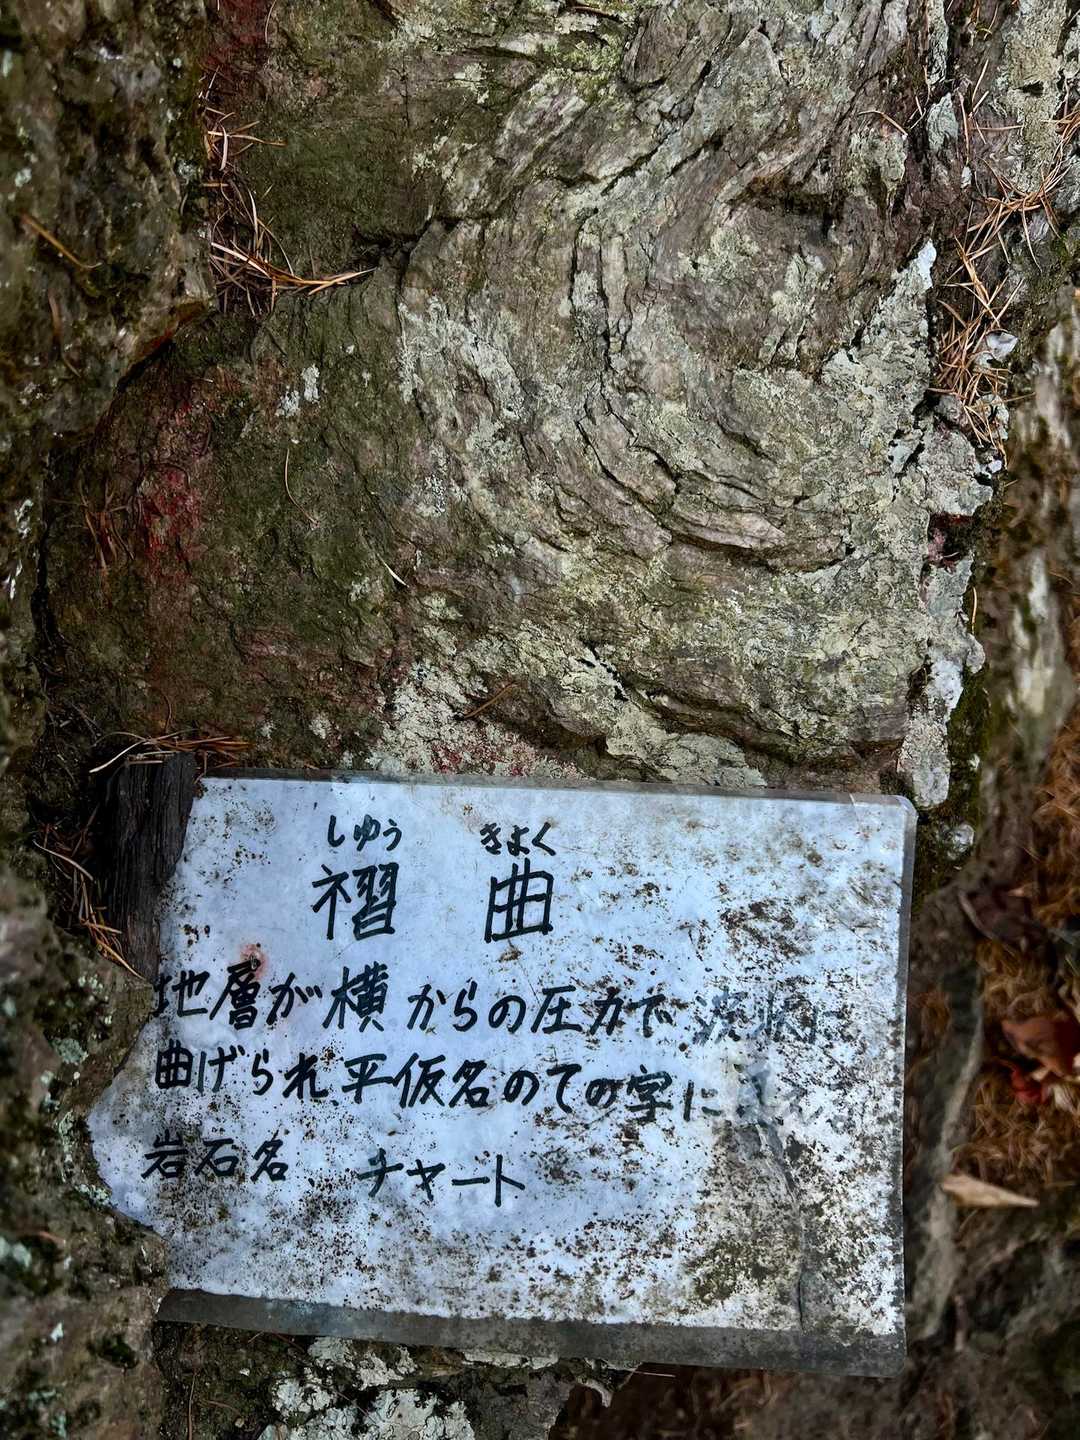 しゅう きょく
褶 曲
地層が横からの圧力で波状に
曲げられ平仮名のての字に
岩石名 チャート